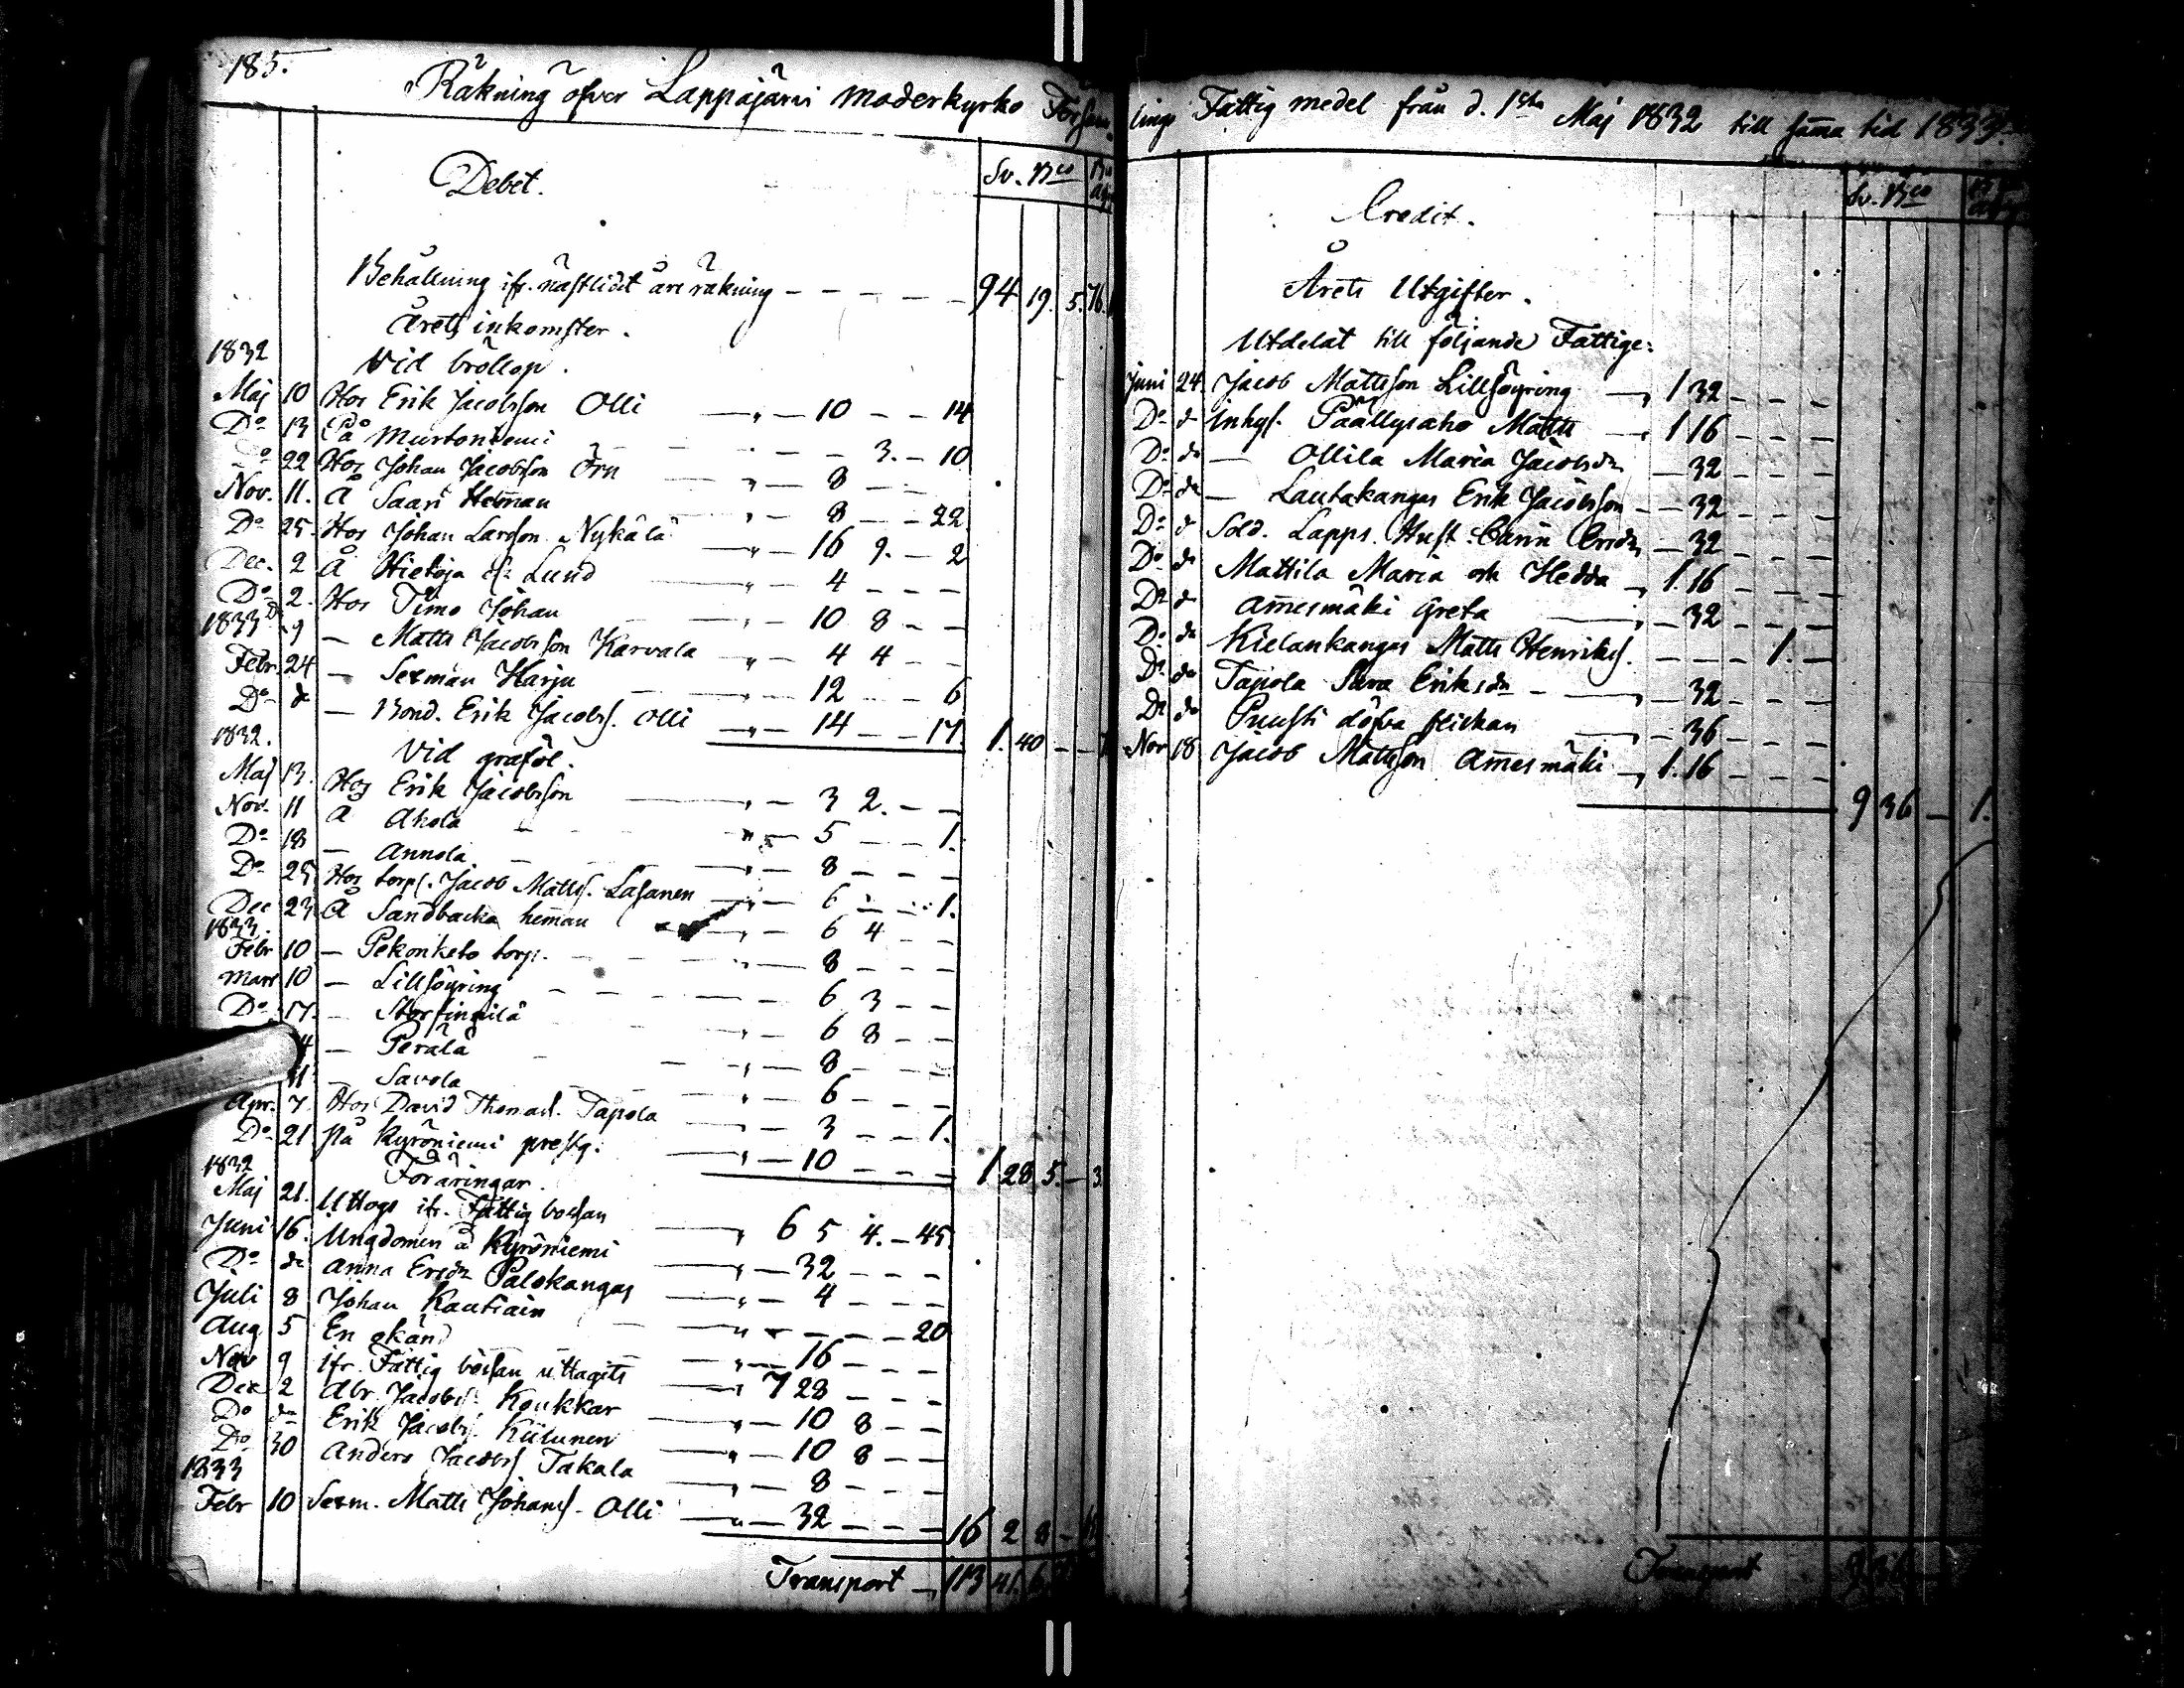 185.
Räkning öfver Lappajärvi Moderkyrko Försam-
Debet.
Sv. Bco
Behållning ifr. nästlidit års räkning - - - - - 94 19. 5. 76.
Årets inkomster.
1832
Vid bröllop.
Maj 10 Hos Erik Jacobsson Olli — " — 10 - - 14
Do 13 På Murtoniemi - - - - 3. - 10
Do 22 Hos Johan Jacobsson Örn — " — 8 - - -
Nov. 11. Å Saari Heman — " — 8 - - 22.
Do 25. Hos Johan Larsson Nykälä — " — 16 9. - 2
Dec. 2 Å Hietoja Lund — " — 4 - - -
Do 2. Hos Timo Johan — " — 10 8 - -
1833 Do 9 — Matts Jacobsson Karvala — " — 4 4 - -
Febr. 24 — Sexman Harju — " — 12 - - 6
Do do — Bond. Erik Jacobs. Olli — " — 14 - - 17. 1. 40 - -
1832.
Vid graföl.
Maj 13. Hos Erik Jacobsson — " — 3 2. - -
Nov. 11 Å Ahola — " — 5 - - 1.
Do 18 — Annola — " — 8 - - -
Do 25 Hos torp. Jacob Matts. Lasanen — " — 6 - - 1.
Dec 23 Å Sandbacka heman — " — 6 4 - -
1833.
Febr 10 — Pekonketo torp. — " — 8 - - -
Mars 10 — Lillsöyring - - - - 6 3 - -
Do 17. — Storsingilä - 6 8 - -
4 — Perälä - - " — 8 - - -
11 — Savola - - " — 6 - - -
Apr. 7 Hos David Thomas. Tapola — " — 3 - - 1.
Do 21 På Kyröniemi prestg. — " — 10 - - - 1 28 5. - 3
1832
Föräringar.
Maj 21. Uttogs ifr. Fattig bössan — " 6 5 4. - 45.
Juni 16. Ungdomen å Kyröniemi — " — 32 - - -
Do do Anna Ersdr Palokangas — " — 4 - - -
Juli 8 Johan Kautiain — " - - - - 20
Aug 5 En okänd — " — 16 - - -
Nov 9 ifr. Fattig bössan uttagits — " 7 28 - - -
Dec 2 Abr. Jacobs. Koukkar — " — 10 8 - -
Do do Erik Jacobs. Kiilunen — " — 10 8 - -
Do 30 Anders Jacobs Takala — " — 8 - - -
1833
Febr 10 Sexm. Matts Johans. Olli — " — 32 - - - 16 2 8 -
Transport — 113 41. 6.
lings Fattig medel från d. 1sta Maj 1832 till sama tid 1833.
Credit.
Sv. Bco
Årets Utgifter.
Utdelat till följande Fattige:
Juni 24. Jacob Mattsson Lillsöyring — " 1 32 - - -
Do do Inhys. Päällysaho Matts — " 1 16 - - -
Do do — Ollila Maria Jacobsdr — 32 - - -
Do do — Lautakangas Erik Jacobsson — 32 - - -
Do do Sold. Lapps Hust. Carin Ersdr — 32 - - -
Do do Mattila Maria och Hedda — " 1. 16 - - -
Do do Amesmäki Greta — " 32 - - -
Do do Kielankangas Matts Henriks. - - - 1. -
Do do Tapola Sara Eriksdr — " 32 - - -
Do do Puusti döfva flickan — " 36 - - -
Nov 18 Jacob Mattsson Amesmäki — " 1. 16 - - -
9 36 — 1.
Transport 9 36